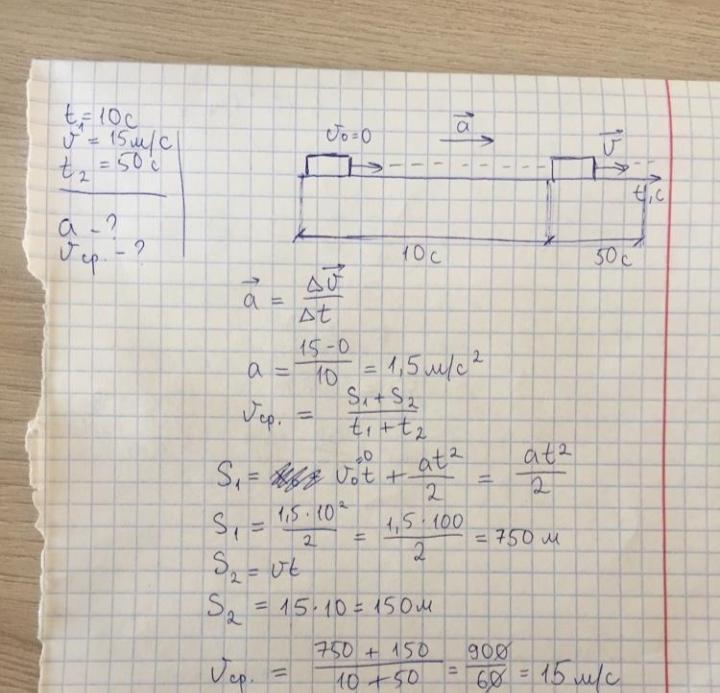 t₁ = 10с
v = 15м/с
t₂ = 50с
a - ?
vср. - ?
v₀=0
a⃗
v⃗
t,с
10с
50с
a⃗ = Δv⃗/Δt
a = (15-0)/10 = 1,5м/с²
vср. = (S₁+S₂)/(t₁+t₂)
S₁ = v₀t⁼⁰ + at²/2 = at²/2
S₁ = 1,5·10²/2 = 1,5·100/2 = 750м
S₂ = vt
S₂ = 15·10 = 150м
vср. = (750 + 150)/(10+50) = 900/60 = 15м/с